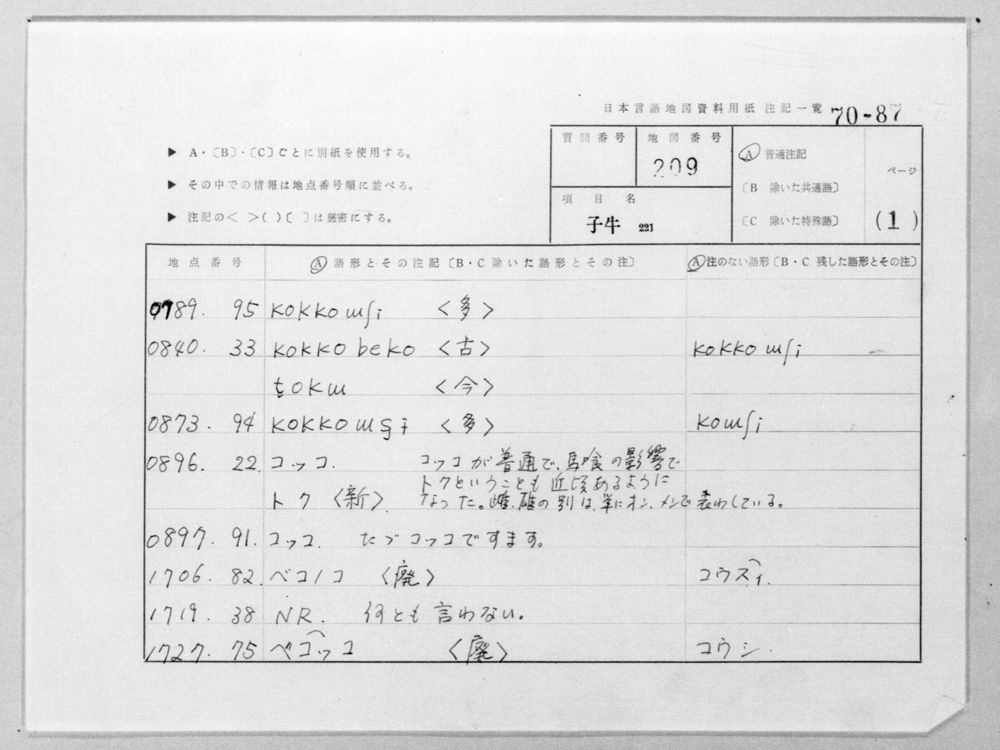 日本言語地図資料用紙 注記一覧 70-87
▶ A・〔B〕・〔C〕ごとに別紙を使用する。
▶ その中での情報は地点番号順に並べる。
▶ 注記の< >( )〔 〕は厳密にする。
質問番号
地図番号
209
項目名
子牛 221
Ⓐ 普通注記
〔B 除いた共通語〕
〔C 除いた特殊語〕
ページ
(1)
地点番号 Ⓐ 語形とその注記〔B・C除いた語形とその注〕 Ⓐ注のない語形〔B・C 残した語形とその注〕
0789. 95 kokkoɯʃi 〈多〉
0840. 33 kokko beko 〈古〉 kokkoɯʃi
t̬okɯ 〈今〉
0873. 94 kokkoɯʃï 〈多〉 koɯʃi
0896. 22 コッコ. コッコが普通で、馬喰の影響で
トクということも近頃あるように
トク 〈新〉. なった。雌、雄の別は、単にオン、メンで表わしている。
0897. 91. コッコ. たゞコッコですます。
1706. 82. ベコノコ 〈廃〉 コウスィ.
1719. 38 NR. 何とも言わない。
1727. 75 ベコッコ 〈廃〉 コウシ.